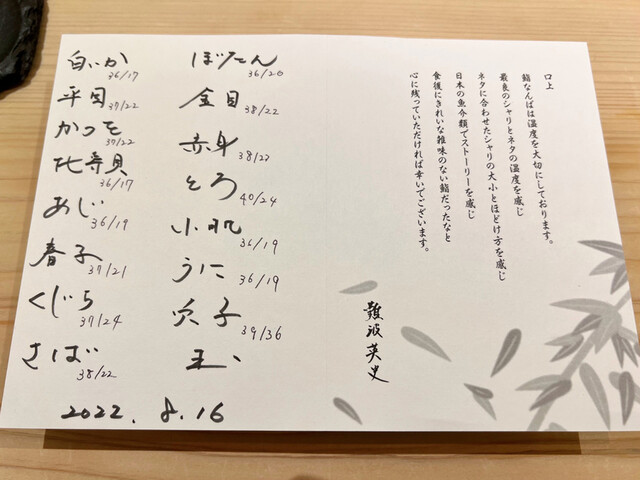 白いか
36/17
平目
37/22
かつを
37/22
北寄貝
36/17
あじ
36/19
春子
37/21
くじら
37/24
さば
38/22
ぼたん
36/20
金目
38/22
赤身
38/22
とろ
40/24
小肌
36/19
うに
36/19
穴子
39/36
玉
2022. 8. 16
口上
鮨なんばは温度を大切にしております。
最良のシャリとネタの温度を感じ
ネタに合わせたシャリの大小とほどけ方を感じ
日本の魚介類でストーリーを感じ
食後にきれいな雑味のない鮨だったなと
心に残っていただければ幸いでございます。
難波英史